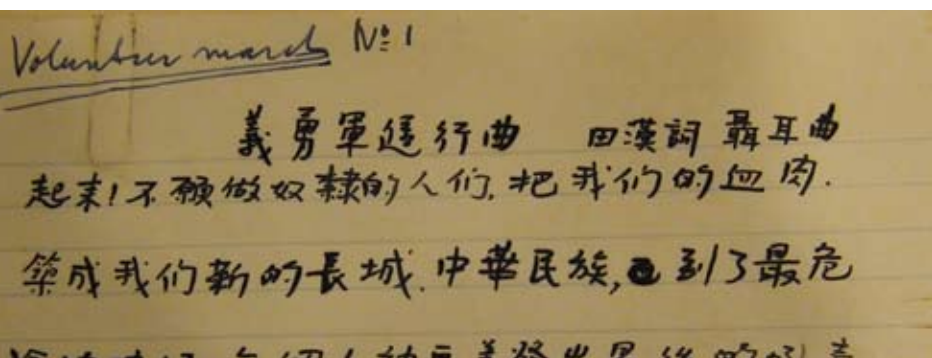 Volunteer march Nº 1
義勇軍進行曲 田漢詞 聶耳曲
起来!不願做奴隸的人们,把我们的血肉.
築成我们新的長城.中華民族,到了最危